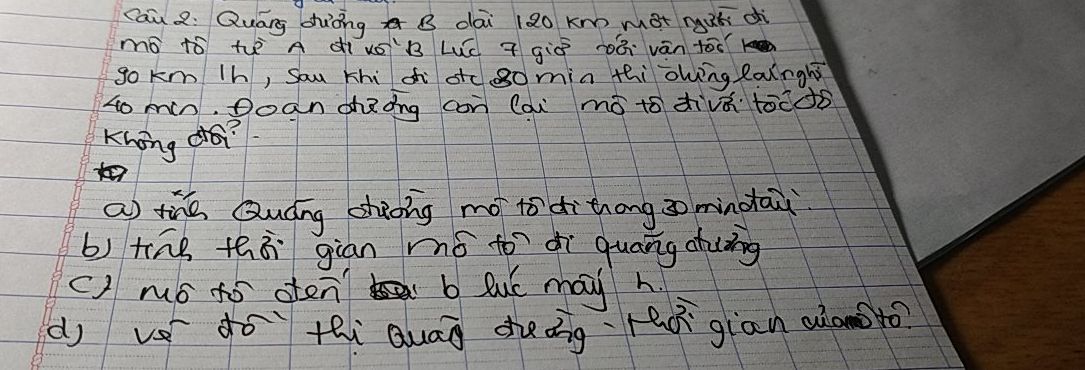 Câu 2. Quãng đường B dài 120 km một người đi
mô tô từ A đi về B Lúc 7 giờ với vân tốc
90 km 1h, sau khi đi đc 30 min thì dừng lại nghỉ
40 min. Đoạn đường còn lại mô tô đi với tốc độ
không đổi?
a) tính Quãng đường mô tô đi trong 30 min đầu
b) tính thời gian mô tô đi quãng đường
c) mô tô đến b lúc mấy h.
d) vẽ đồ thị Quãg đường - thời gian của mô tô?